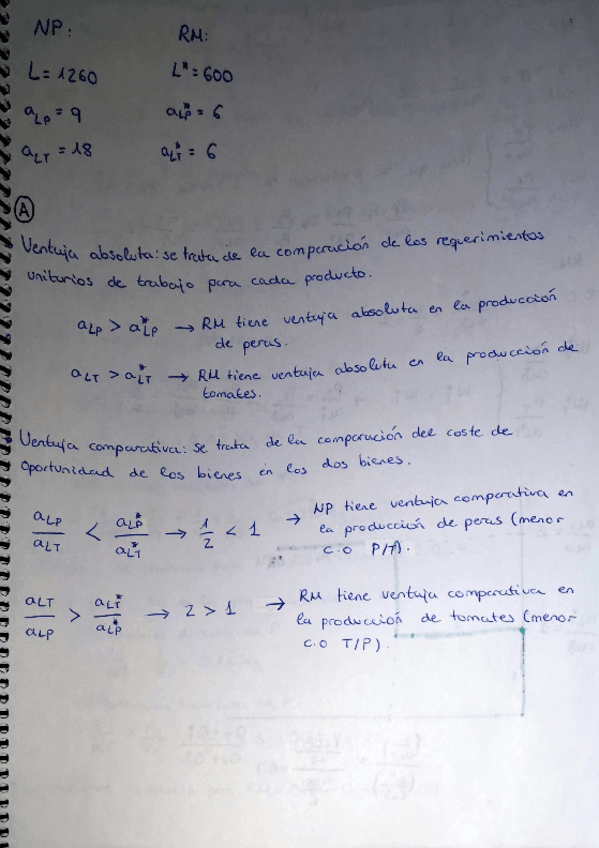 NP: RM:
L = 1260 L* = 600
aLP = 9 aLP* = 6
aLT = 18 aLT* = 6
A
Ventaja absoluta: se trata de la comparación de los requerimientos
unitarios de trabajo para cada producto.
aLP > aLP* → RM tiene ventaja absoluta en la producción
de peras.
aLT > aLT* → RM tiene ventaja absoluta en la producción de
tomates.
Ventaja comparativa: se trata de la comparación del coste de
oportunidad de los bienes en los dos bienes.
aLP/aLT < aLP*/aLT* → 1/2 < 1 → NP tiene ventaja comparativa en
la producción de peras (menor
c.o P/T).
aLT/aLP > aLT*/aLP* → 2 > 1 → RM tiene ventaja comparativa en
la producción de tomates (menor
c.o T/P).